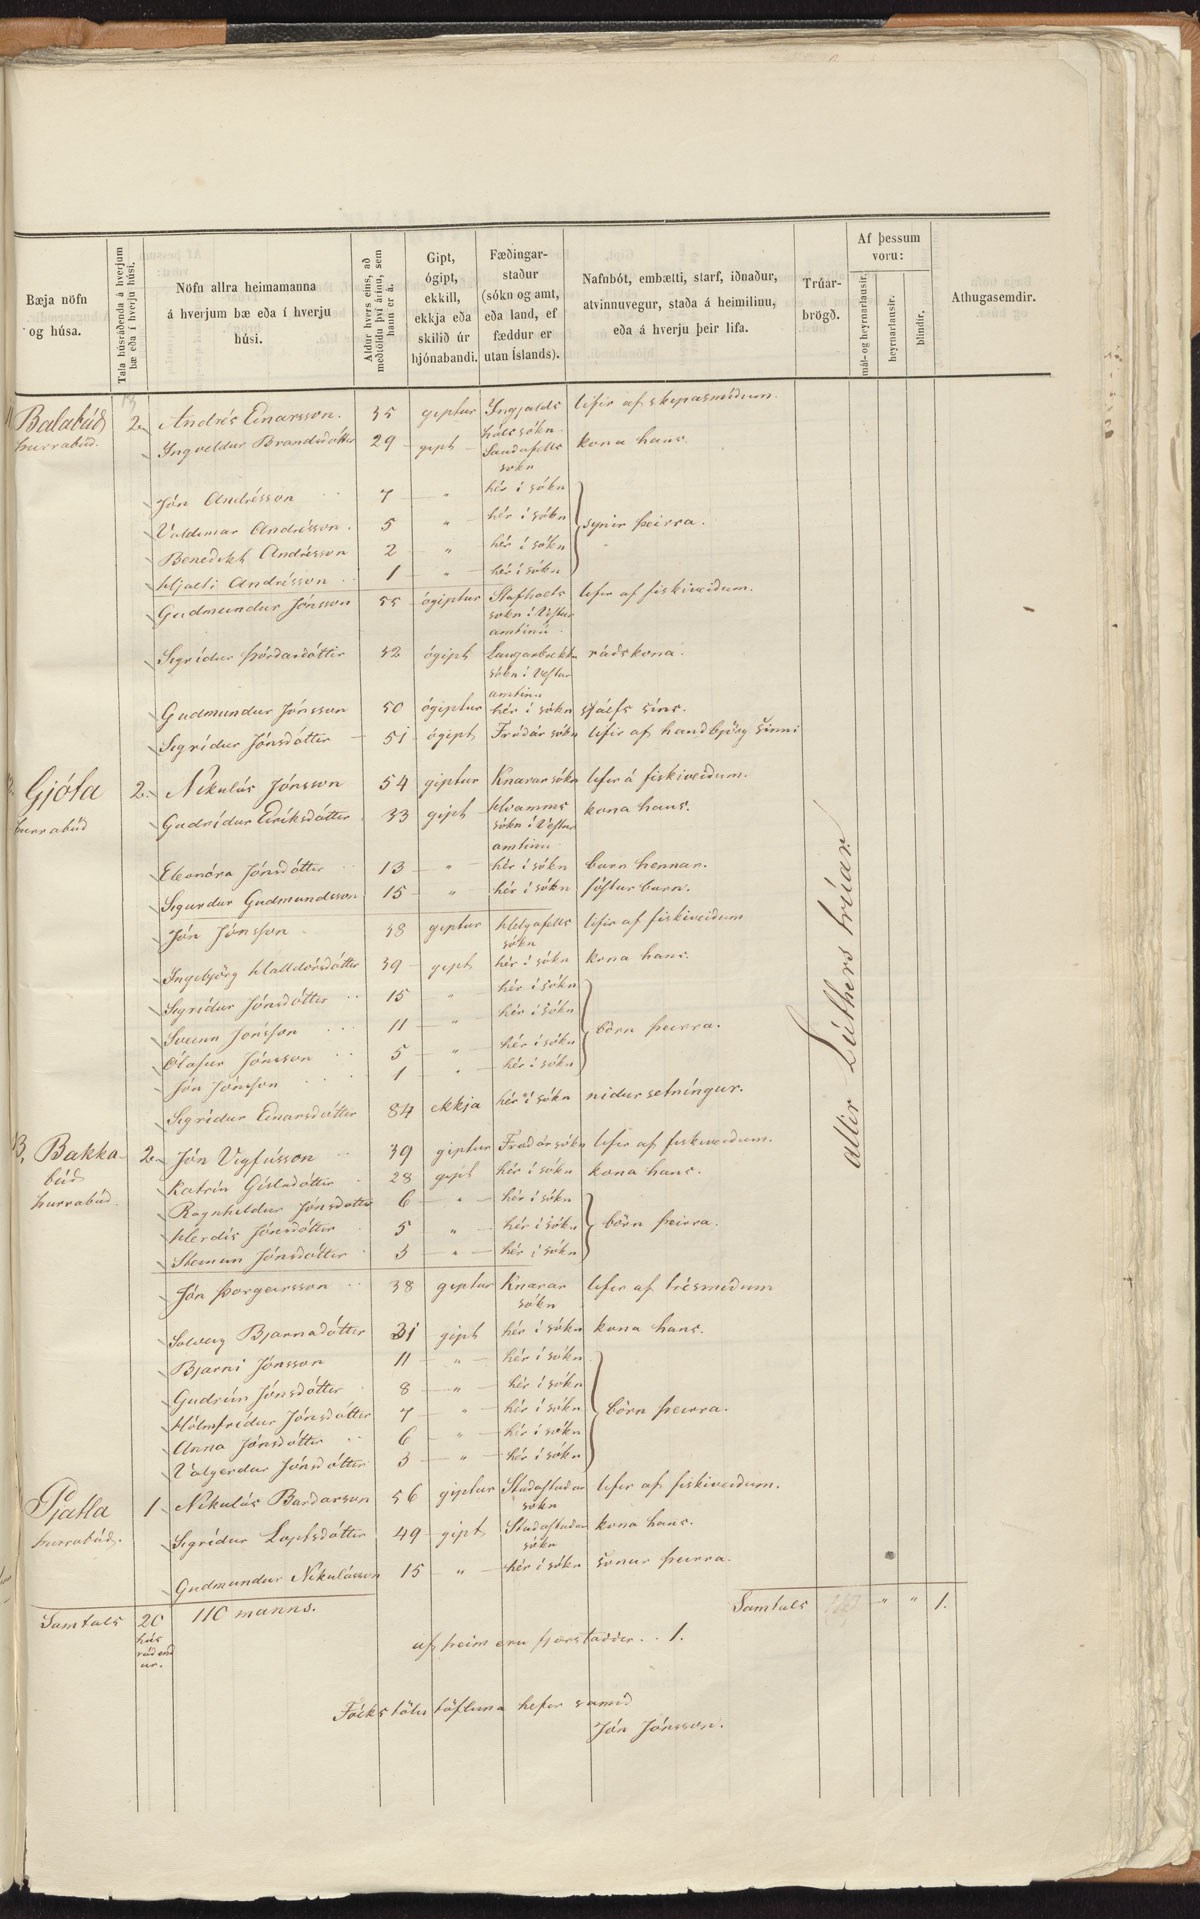 Bæja nöfn og húsa.
Tala húsráðenda á hverjum bæ eða í hverju húsi.
Nöfn allra heimamanna á hverjum bæ eða í hverju húsi.
Aldur hvers eins, að meðtöldu því árinu, sem hann er á.
Gipt, ógipt, ekkill, ekkja eða skilið úr hjónabandi.
Fæðingarstaður (sókn og amt, eða land, ef fæddur er utan Íslands).
Nafnbót, embætti, starf, iðnaður, atvinnuvegur, staða á heimilinu, eða á hverju þeir lifa.
Trúarbrögð.
Af þessum voru:
mál- og heyrnarlausir.
heyrnarlausir.
blindir.
Athugasemdir.
11 Balabúð 2 Andrés Einarsson. 35 giptur Ingjalds lifir af skipasmídum.
þurrabúd. Ingveldur Brandsdótter 29 gipt hóls sókn. Saudafells sókn kona hans.
Jón Andrésson 7 " hér i sókn
Valdimar Andrésson. 5 " hér i sókn synir þeirra.
Benedikt Andrésson 2 " hér i sókn
Hjalti Andrésson 1 " hér i sókn
Gudmundur Jónsson 55 ógiptur Stafholts sokn i Vestur amtinu lifir af fiskiveidum.
Sigrídur Þórdardótter 32 ógipt Laugarbrekku sókn i Vestur amtinu rádskona.
Gudmundur Jónsson 50 ógiptur hér i sókn sjálfs síns.
Sigrídur Jónsdótter 51 ógipt Fródár sókn lifir af handbjörg sinni
Gjóta 2. Nikulás Jónsson 54 giptur Knarar sókn lifir á fiskiveidum.
þurrabúd Gudrídur Eiríksdótter 33 gipt Hvamms sókn i Vestur amtinu kona hans.
Eleonóra Jónsdótter 13 " hér i sókn barn hennar.
Sigurdur Gudmundsson 15 " hér i sókn fóstur barn.
Jón Jónsson 38 giptur Helgafells sókn lifir af fiskiveidum
Ingibjörg Halldórsdótter 39 gipt hér i sókn kona hans.
Sigrídur Jónsdótter 15 " hér i sókn
Sveinn Jónsson 11 " hér i sókn börn þeirra.
Ólafur Jónsson 5 " hér i sókn
Jón Jónsson 1 " hér i sókn
Sigrídur Einarsdótter 84 ekkja hér i sókn nidursetníngur.
13, Bakka- 2 Jón Vigfússon 39 giptur Fródár sókn lifir af fiskiveidum.
búd Katrín Gísladótter 28 gipt hér i sókn kona hans.
þurrabúd. Ragnheidur Jónsdótter 6 " hér i sókn
Herdís Jónsdótter 5 " hér i sókn börn þeirra.
Steinun Jónsdótter 3 " hér i sókn
Jón Þorgeirsson 38 giptur Knarar sókn lifir af trésmídum
Solveig Bjarnadótter 31 gipt hér i sókn kona hans.
Bjarni Jónsson 11 " hér i sókn
Gudrún Jónsdótter 8 " hér i sókn
Hólmfrídur Jónsdótter 7 " hér i sókn börn þeirra.
Anna Jónsdótter 6 " hér i sókn
Valgerdur Jónsdótter 3 " hér i sókn
Pjatla 1 Nikulás Bárdarson 56 giptur Stadastadar sókn lifir af fiskiveidum.
þurrabúd. Sigrídur Loptsdótter 49 gipt Stadastadar sókn kona hans.
Gudmundur Nikulásson 15 " hér i sókn sonur þeirra.
allir Lúthers trúar
Samtals 20 húsrádendur. 110 manns.
Samtals " " 1.
af þeim eru fjærstaddir.. 1.
Fólks tölu töfluna hefir samid
Jón Jónsson.